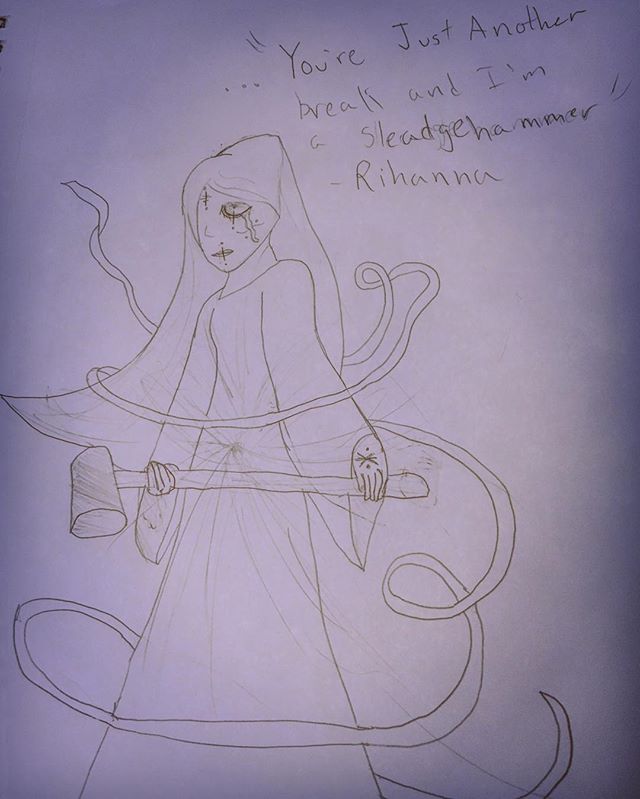 ... "You're Just Another
break and I'm
a sleadgehammer"
- Rihanna